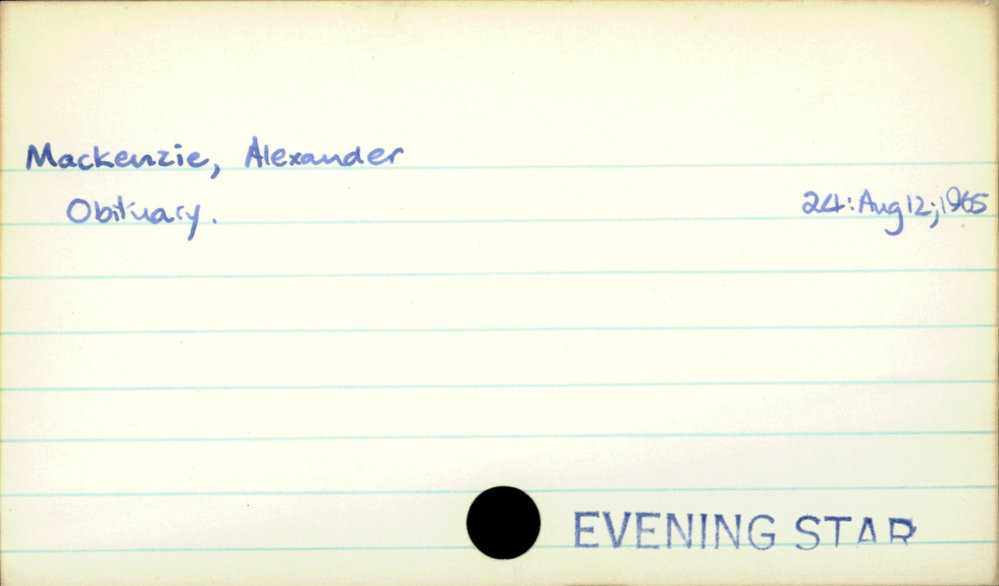 Mackenzie, Alexander
Obituary. 24: Aug 12; 1965
EVENING STAR